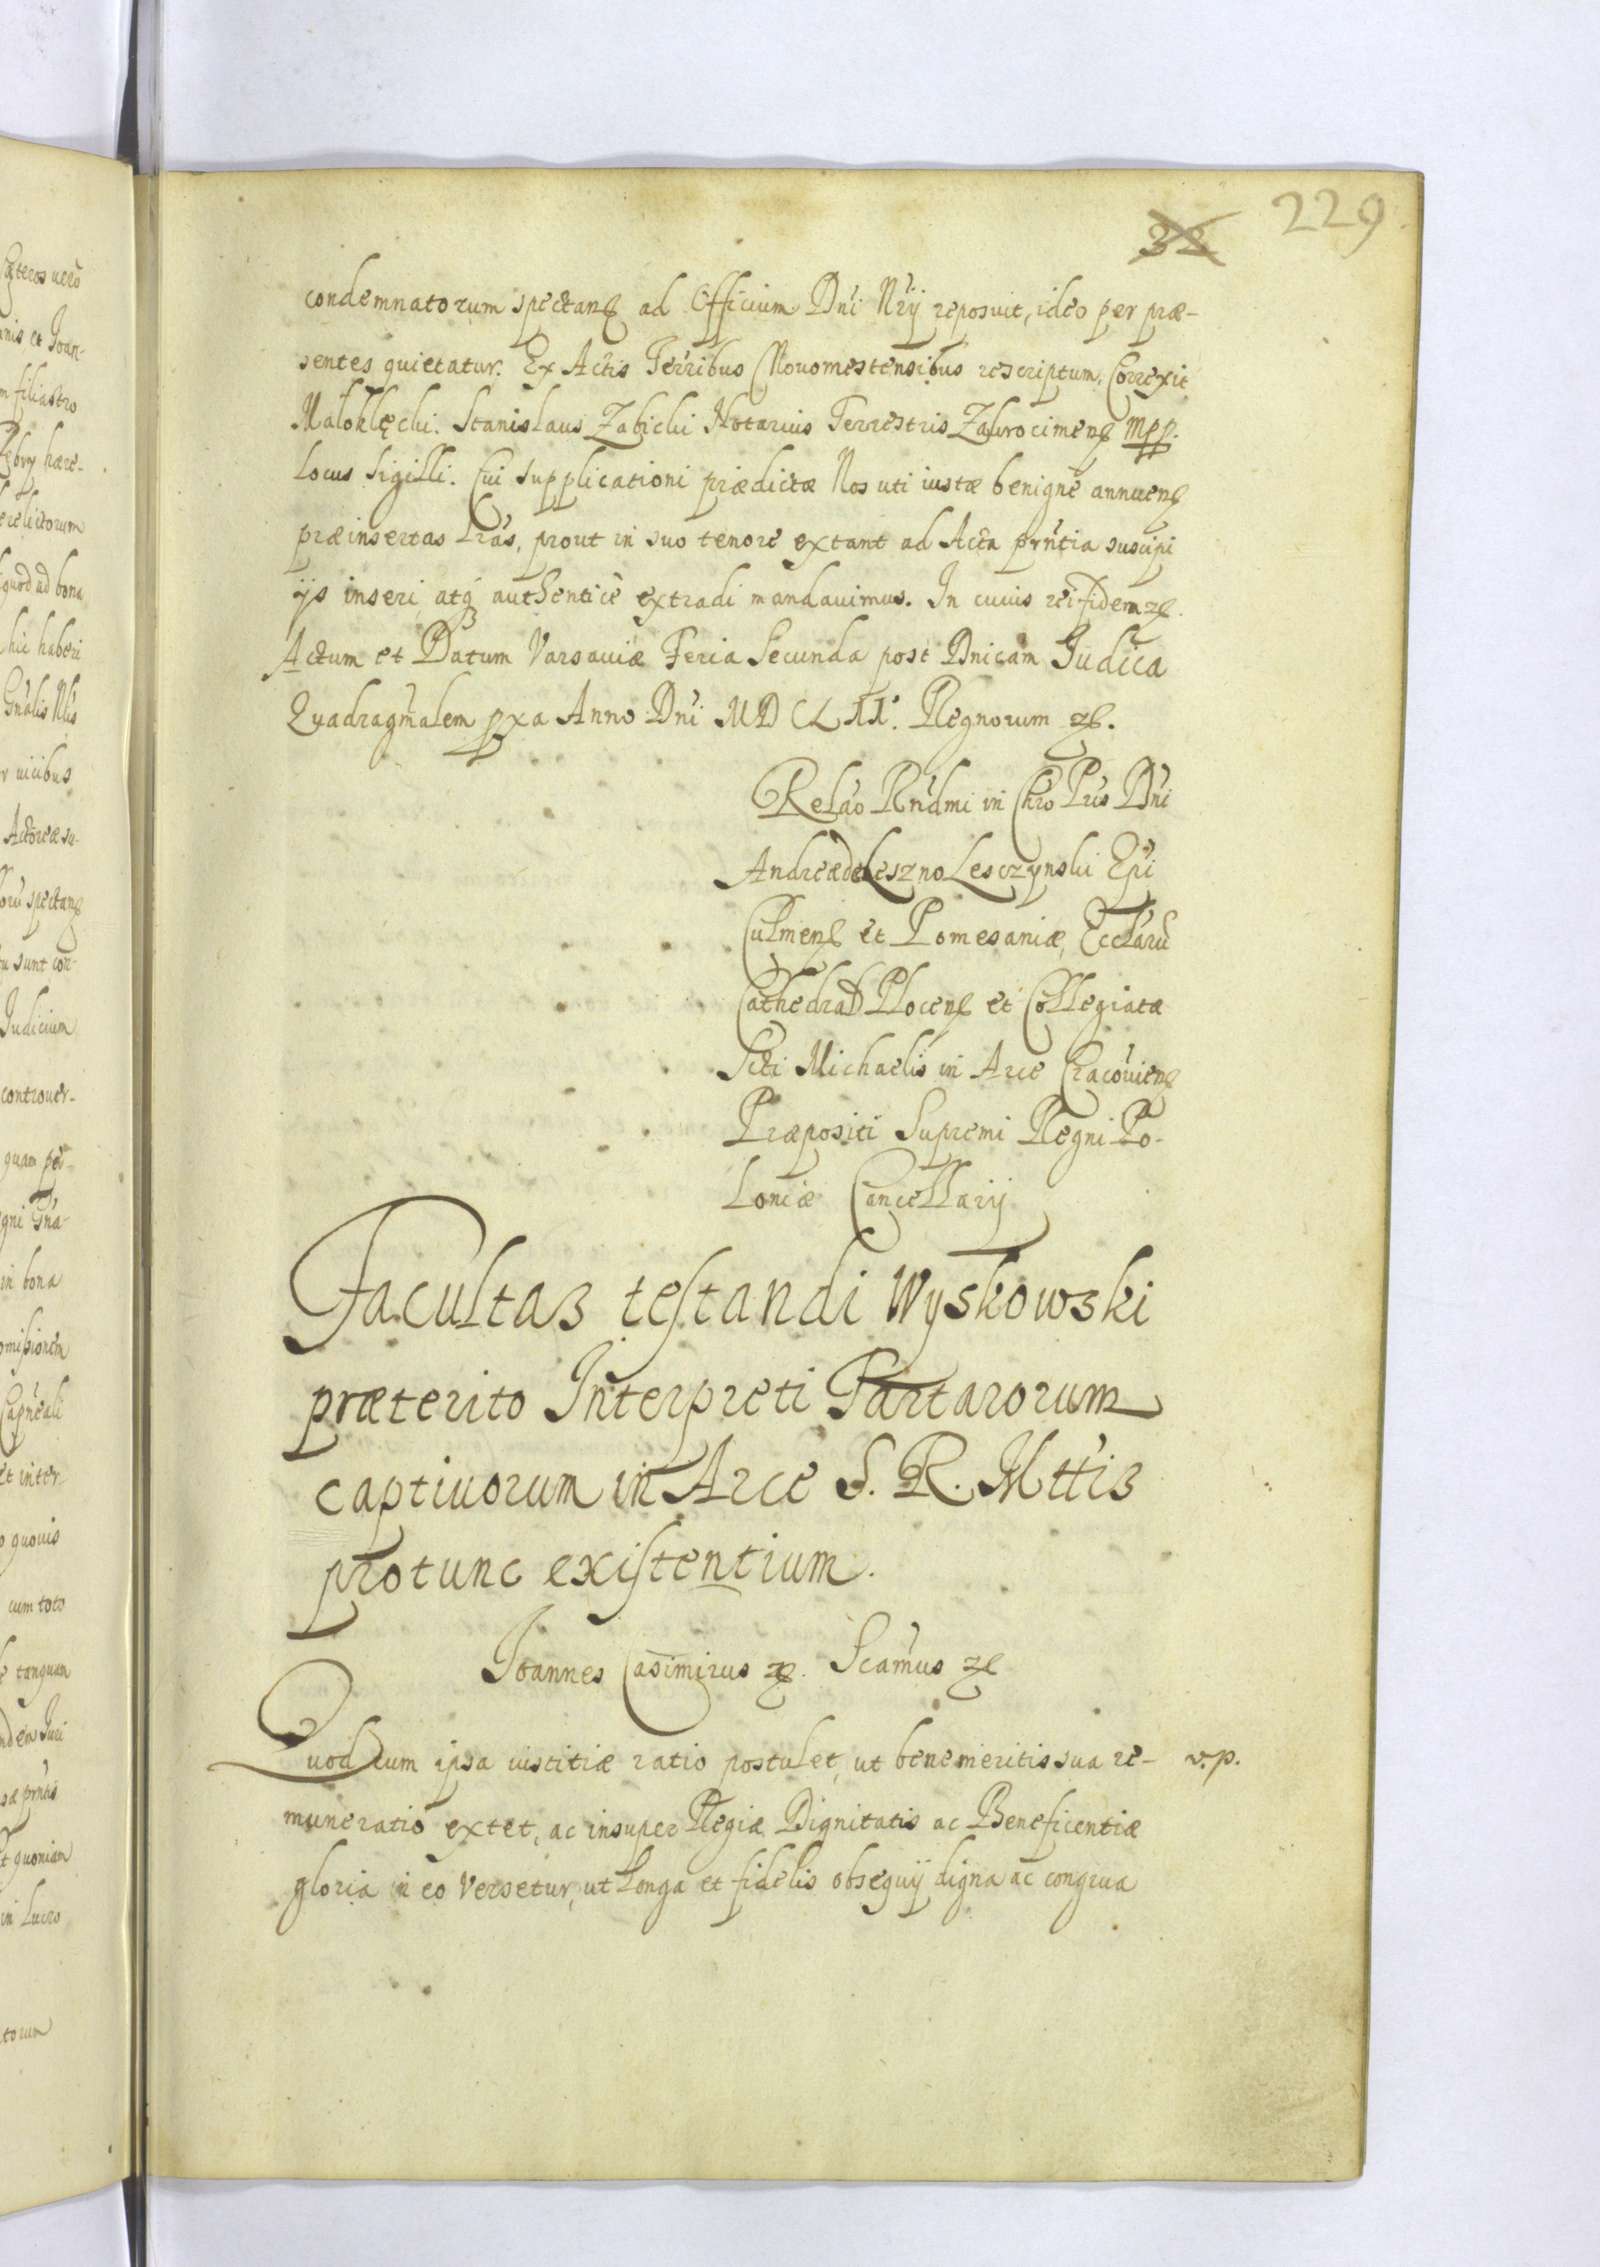 229
32
condemnatorum spectans ad Officium Dni Nrij reposuit, ideo per præ-
sentes quietatur. Ex Actis Terribus Novomestensibus rescriptum. Correxit
Małoklęcki. Stanislaus Zabicki Notarius Terrestris Zakrocimens mpp.
Locus Sigilli. Cui supplicationi prædictæ Nos uti iustæ benigne annuens
præinsertas Lras, prout in suo tenore extant ad Acta prntia suscipi
ijs inseri atq authentice extradi mandavimus. In cuius rei fidem etc.
Actum et Datum Varsaviæ Feria Secunda post Dnicam Judica
Quadragmalem pxa Anno Dni MDCLII. Regnorum etc.
Relao Rndmi in Chro Pris Dni
Andreæ de Leszno Lesczynski Epi
Culmens et Pomesaniæ, Ecclaru
Cathedral Plocens et Collegiatæ
Scti Michaelis in Arce Cracoviens
Præpositi Supremi Regni Po-
loniæ Cancellarij
Facultas testandi Wyskowski
præterito Interpreti Tartarorum
captivorum in Arce S. R. Mttis
protunc existentium.
Ioannes Casimirus etc. Scamus etc
Quod cum ipsa iustitiæ ratio postulet, ut benemeritis sua re- v.p.
muneratio extet, ac insuper Regiæ Dignitatis ac Beneficentiæ
gloria in eo versetur, ut longa et fidelis obsequij digna ac congrua